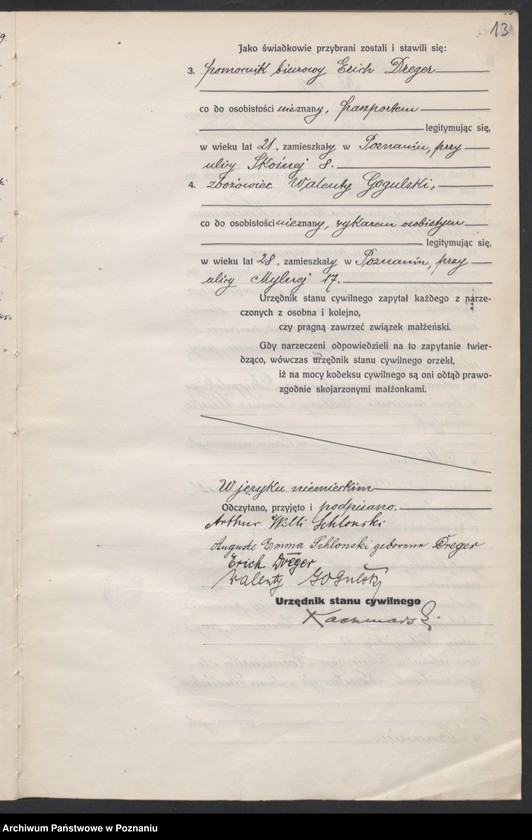 13
Jako świadkowie przybrani zostali i stawili się:
3. pomocnik biurowy Erich Dreger
co do osobistości nieznany, paszportem
legitymując się,
w wieku lat 21, zamieszkały w Poznaniu, przy
ulicy Skośnej 8.
4. zbożowiec Walenty Gogulski,
co do osobistości nieznany, wykazem osobistym
legitymując się,
w wieku lat 28, zamieszkały w Poznaniu, przy
ulicy Mylnej 17.
Urzędnik stanu cywilnego zapytał każdego z narze-
czonych z osobna i kolejno,
czy pragną zawrzeć związek małżeński.
Gdy narzeczeni odpowiedzieli na to zapytanie twier-
dząco, wówczas urzędnik stanu cywilnego orzekł,
iż na mocy kodeksu cywilnego są oni odtąd prawo-
zgodnie skojarzonymi małżonkami.
W języku niemieckim
Odczytano, przyjęto i podpisano.
Arthur Willi Schlonski
Auguste Emma Schlonski geborene Dreger
Erich Dreger
Walenty Gogulski
Urzędnik stanu cywilnego
Archiwum Państwowe w Poznaniu